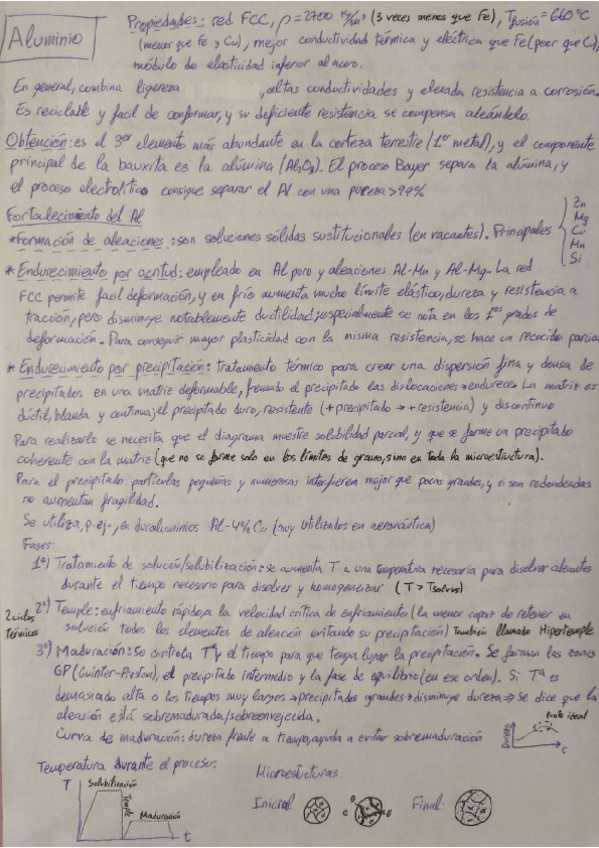 Aluminio
Propiedades: red FCC, ρ=2700 kg/m³ (3 veces menos que Fe), Tfusión=660°C
(menor que Fe y Cu), mejor conductividad térmica y eléctrica que Fe (peor que Cu),
módulo de elasticidad inferior al acero.
En general, combina ligereza , altas conductividades y elevada resistencia a corrosión.
Es reciclable y facil de conformar, y su deficiente resistencia se compensa aleándolo.
Obtención: es el 3er elemento más abundante en la corteza terrestre (1er metal), y el componente
principal de la bauxita es la alúmina (Al₂O₃). El proceso Bayer separa la alúmina, y
el proceso electrolítico consigue separar el Al con una pureza >99%
Fortalecimiento del Al
*Formación de aleaciones: son soluciones sólidas sustitucionales (en vacantes). Principales
Zn
Mg
Cu
Mn
Si
* Endurecimiento por acritud: empleado en Al puro y aleaciones Al-Mn y Al-Mg. La red
FCC permite facil deformación, y en frío aumenta mucho límite elástico, dureza y resistencia a
tracción, pero disminuye notablemente ductilidad; especialmente se nota en los 1os grados de
deformación. Para conseguir mayor plasticidad con la misma resistencia, se hace un recocido parcial
* Endurecimiento por precipitación: tratamiento térmico para crear una dispersión fina y densa de
precipitados en una matriz deformable, frenando el precipitado las dislocaciones→endurece. La matriz es
dúctil, blanda y continua; el precipitado duro, resistente (+precipitado → +resistencia) y discontinuo
Para realizarlo se necesita que el diagrama muestre solubilidad parcial, y que se forme un precipitado
coherente con la matriz (que no se forme solo en los límites de grano, sino en toda la microestructura).
Para el precipitado: partículas pequeñas y numerosas interfieren mejor que pocas grandes, y si son redondeadas
no aumentan fragilidad.
Se utiliza, p.ej., en duraluminios Al-4% Cu (muy utilizados en aeronáutica)
Fases:
1º) Tratamiento de solución/solubilización: se aumenta T a una temperatura necesaria para disolver aleantes
durante el tiempo necesario para disolver y homogeneizar (T > Tsolvus)
2 ciclos
térmicos
2º) Temple: enfriamiento rápido, a la velocidad crítica de enfriamiento (la menor capaz de retener en
solución todos los elementos de aleación evitando su precipitación) También llamado Hipertemple
3º) Maduración: Se controla Tª y el tiempo para que tenga lugar la precipitación. Se forman las zonas
GP (Guinier-Preston), el precipitado intermedio y la fase de equilibrio (en ese orden). Si Tª es
demasiado alta o los tiempos muy largos → precipitados grandes → disminuye dureza → Se dice que la
aleación está sobremadurada/sobreenvejecida.
Curva de maduración: dureza frente a tiempo, ayuda a evitar sobremaduración
Punto ideal
Dureza
t
Temperatura durante el proceso:
T
Solubilización
Temple
Maduración
t
Microestructuras:
Inicial
Final: